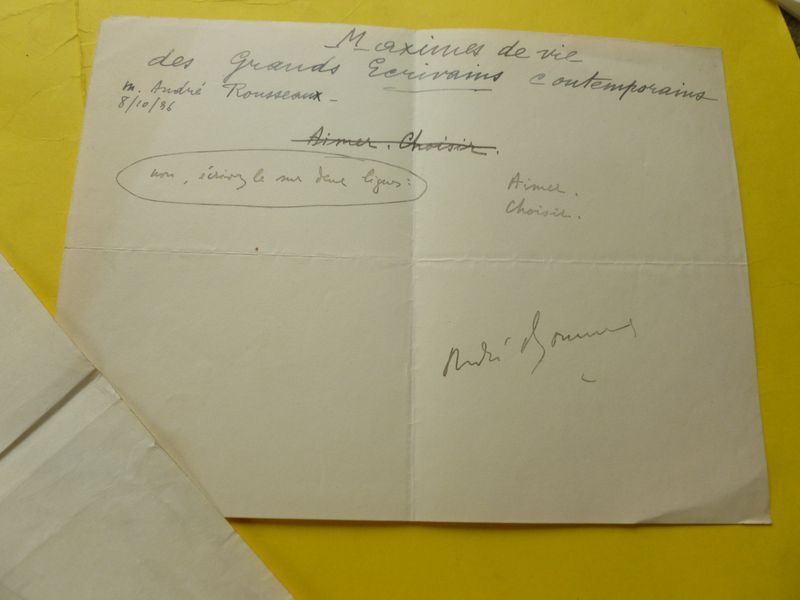 Maximes de vie
des Grands Ecrivains contemporains
M. André Rousseaux -
8/10/36
Aimer. Choisir.
non, écrivez le sur deux lignes :
Aimer.
Choisir.
André Rousseaux